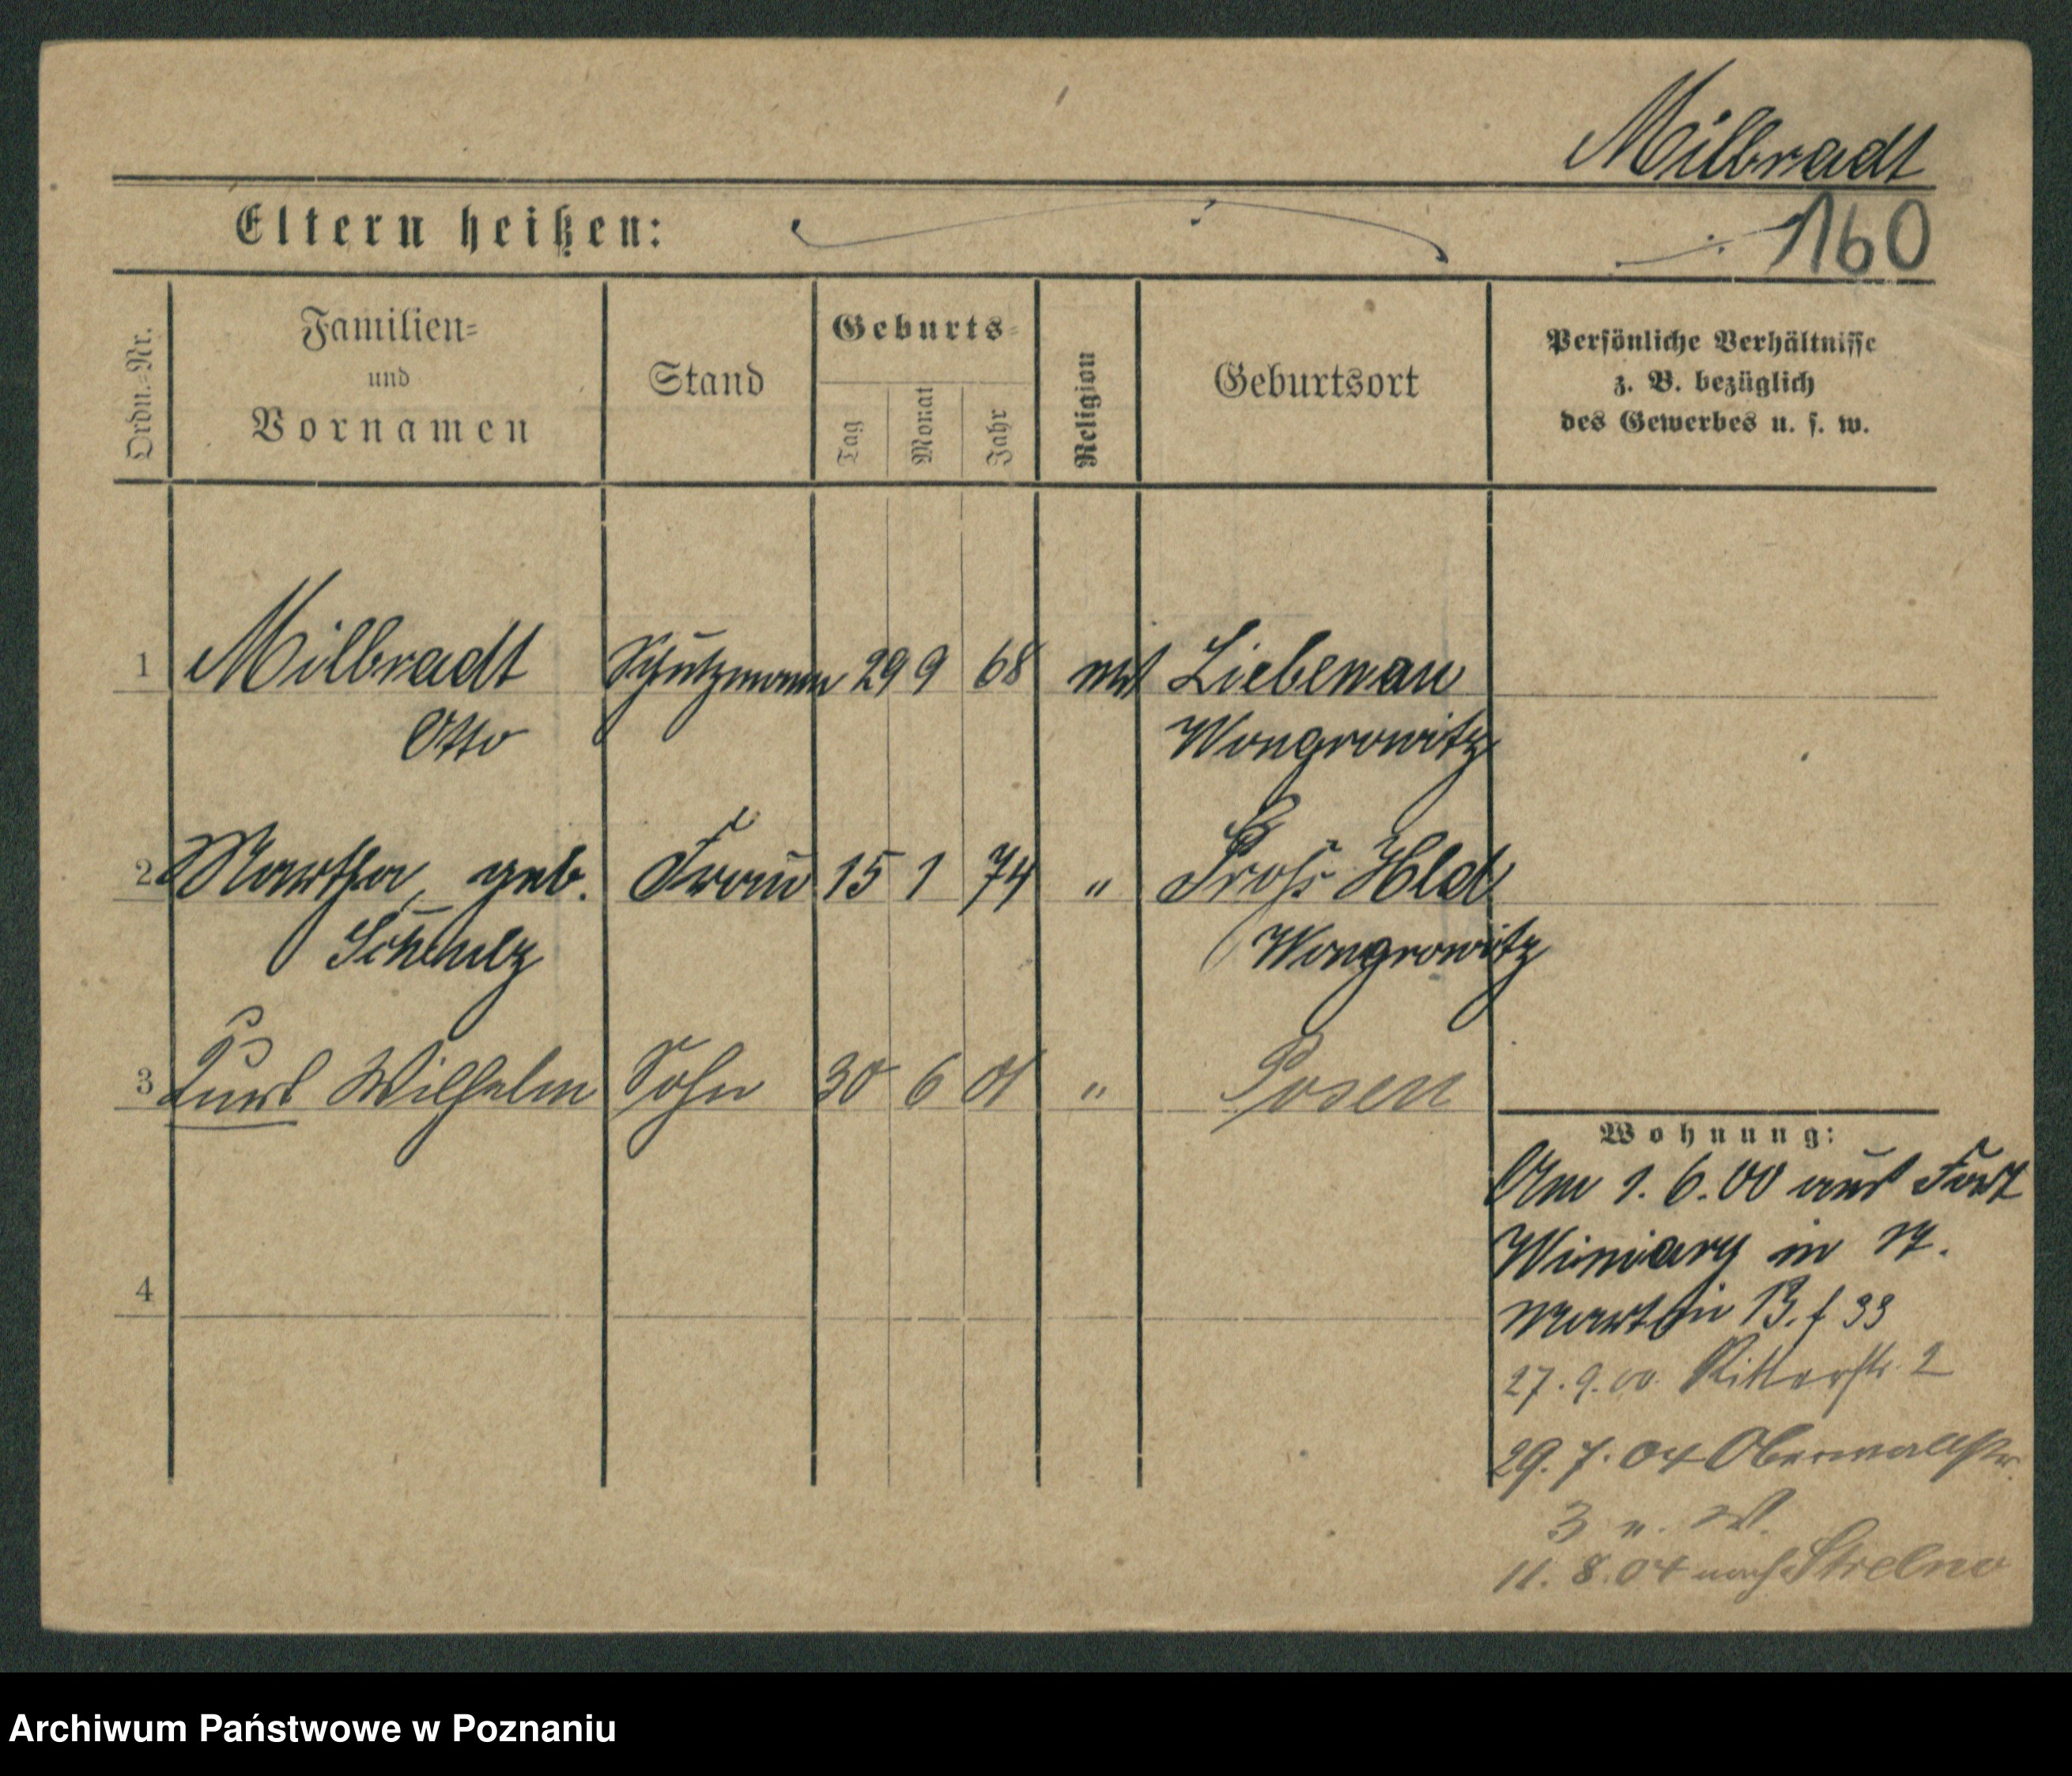 Milbradt
Eltern heißen:
160
Ordn.=Nr.
Familien=
und
Vornamen
Stand
Geburts=
Tag
Monat
Jahr
Religion
Geburtsort
Persönliche Verhältnisse
z. B. bezüglich
des Gewerbes u. s. w.
1 Milbradt Schutzmann 29 9 68 Liebenau
Otto Wongrowitz
2 Martha, geb. Frau 15 1 74 " Hld
Schulz Wongrowitz
3 Kurt Wilhelm Sohn 30 6 01 " Posen
Wohnung:
Am 1. 6. 00 aus Fort
Winiary in St.
Martin 33
27. 9. 00. Ritterstr. 2
29. 7. 04 Oberwallstr.
3
11. 8. 04 nach Strelno
4
Archiwum Państwowe w Poznaniu